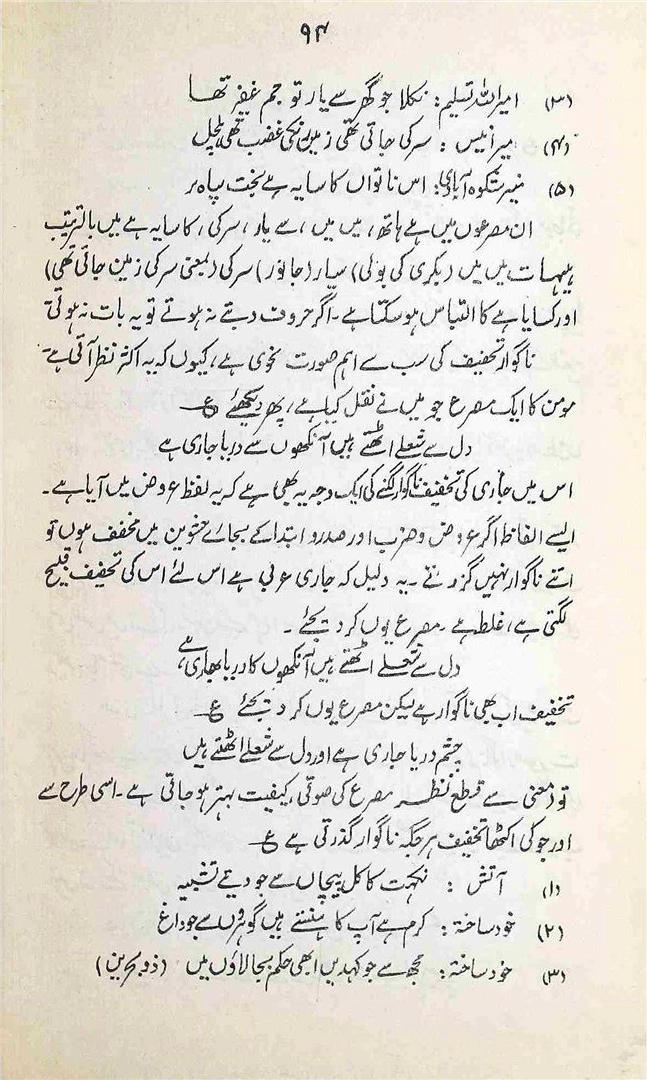 ۹۴
(۳) امیر اللہ تسلیم: نکلا جو گھر سے یار تو جم غفیر تھا
(۴) میر انیس: سرکی جاتی تھی زمیں رن کی غضب تھی ہلچل
(۵) منیر شکوہ آبادی: اس ناتواں کا سایہ ہے بخت سیاہ پر
ان مصرعوں میں ہے ہاتھ، میں میں، سے یار، سرکی، کا سایہ ہے میں بالترتیب
ہیہات میں میں (بکری کی بولی) سیار (جانور) سرکی (بمعنی سر کی زمین جاتی تھی)
اور کسایا ہے کا التباس ہو سکتا ہے۔ اگر حروف دبتے نہ ہوتے تو یہ بات نہ ہوتی
ناگوار تخفیف کی سب سے اہم صورت نحوی ہے، کیوں کہ یہ اکثر نظر آتی ہے۔
مومن کا ایک مصرع جو میں نے نقل کیا ہے، پھر دیکھئے ع
دل سے شعلے اٹھتے ہیں آنکھوں سے دریا جاری ہے
اس میں جاری کی تخفیف ناگوار لگنے کی ایک وجہ یہ بھی ہے کہ یہ لفظ عروض میں آیا ہے۔
ایسے الفاظ اگر عروض و ضرب اور صدر و ابتدا کے بجائے حشوین میں مخفف ہوں تو
اتنے ناگوار نہیں گزرتے۔ یہ دلیل کہ جاری عربی ہے اس لئے اس کی تخفیف قبیح
لگتی ہے، غلط ہے۔ مصرع یوں کر دیجئے۔
دل سے شعلے اٹھتے ہیں آنکھوں کا دریا بھاری ہے
تخفیف اب بھی ناگوار ہے لیکن مصرع یوں کر دیجئے ع
چشم دریا جاری ہے اور دل سے شعلے اٹھتے ہیں
تو معنی سے قطع نظر مصرع کی صوتی کیفیت بہتر ہو جاتی ہے۔ اسی طرح سے
اور جو کی اکٹھا تخفیف ہر جگہ ناگوار گذرتی ہے ع
(۱) آتش: نکہت کاکل پیچاں سے جو دیتے تشبیہ
(۲) خود ساختہ: کرم ہے آپ کا ہنستے ہیں گوہروں سے جو داغ
(۳) خود ساختہ: مجھ سے جو کہدیں ابھی حکم بجا لاؤں میں (ذو بحرین)